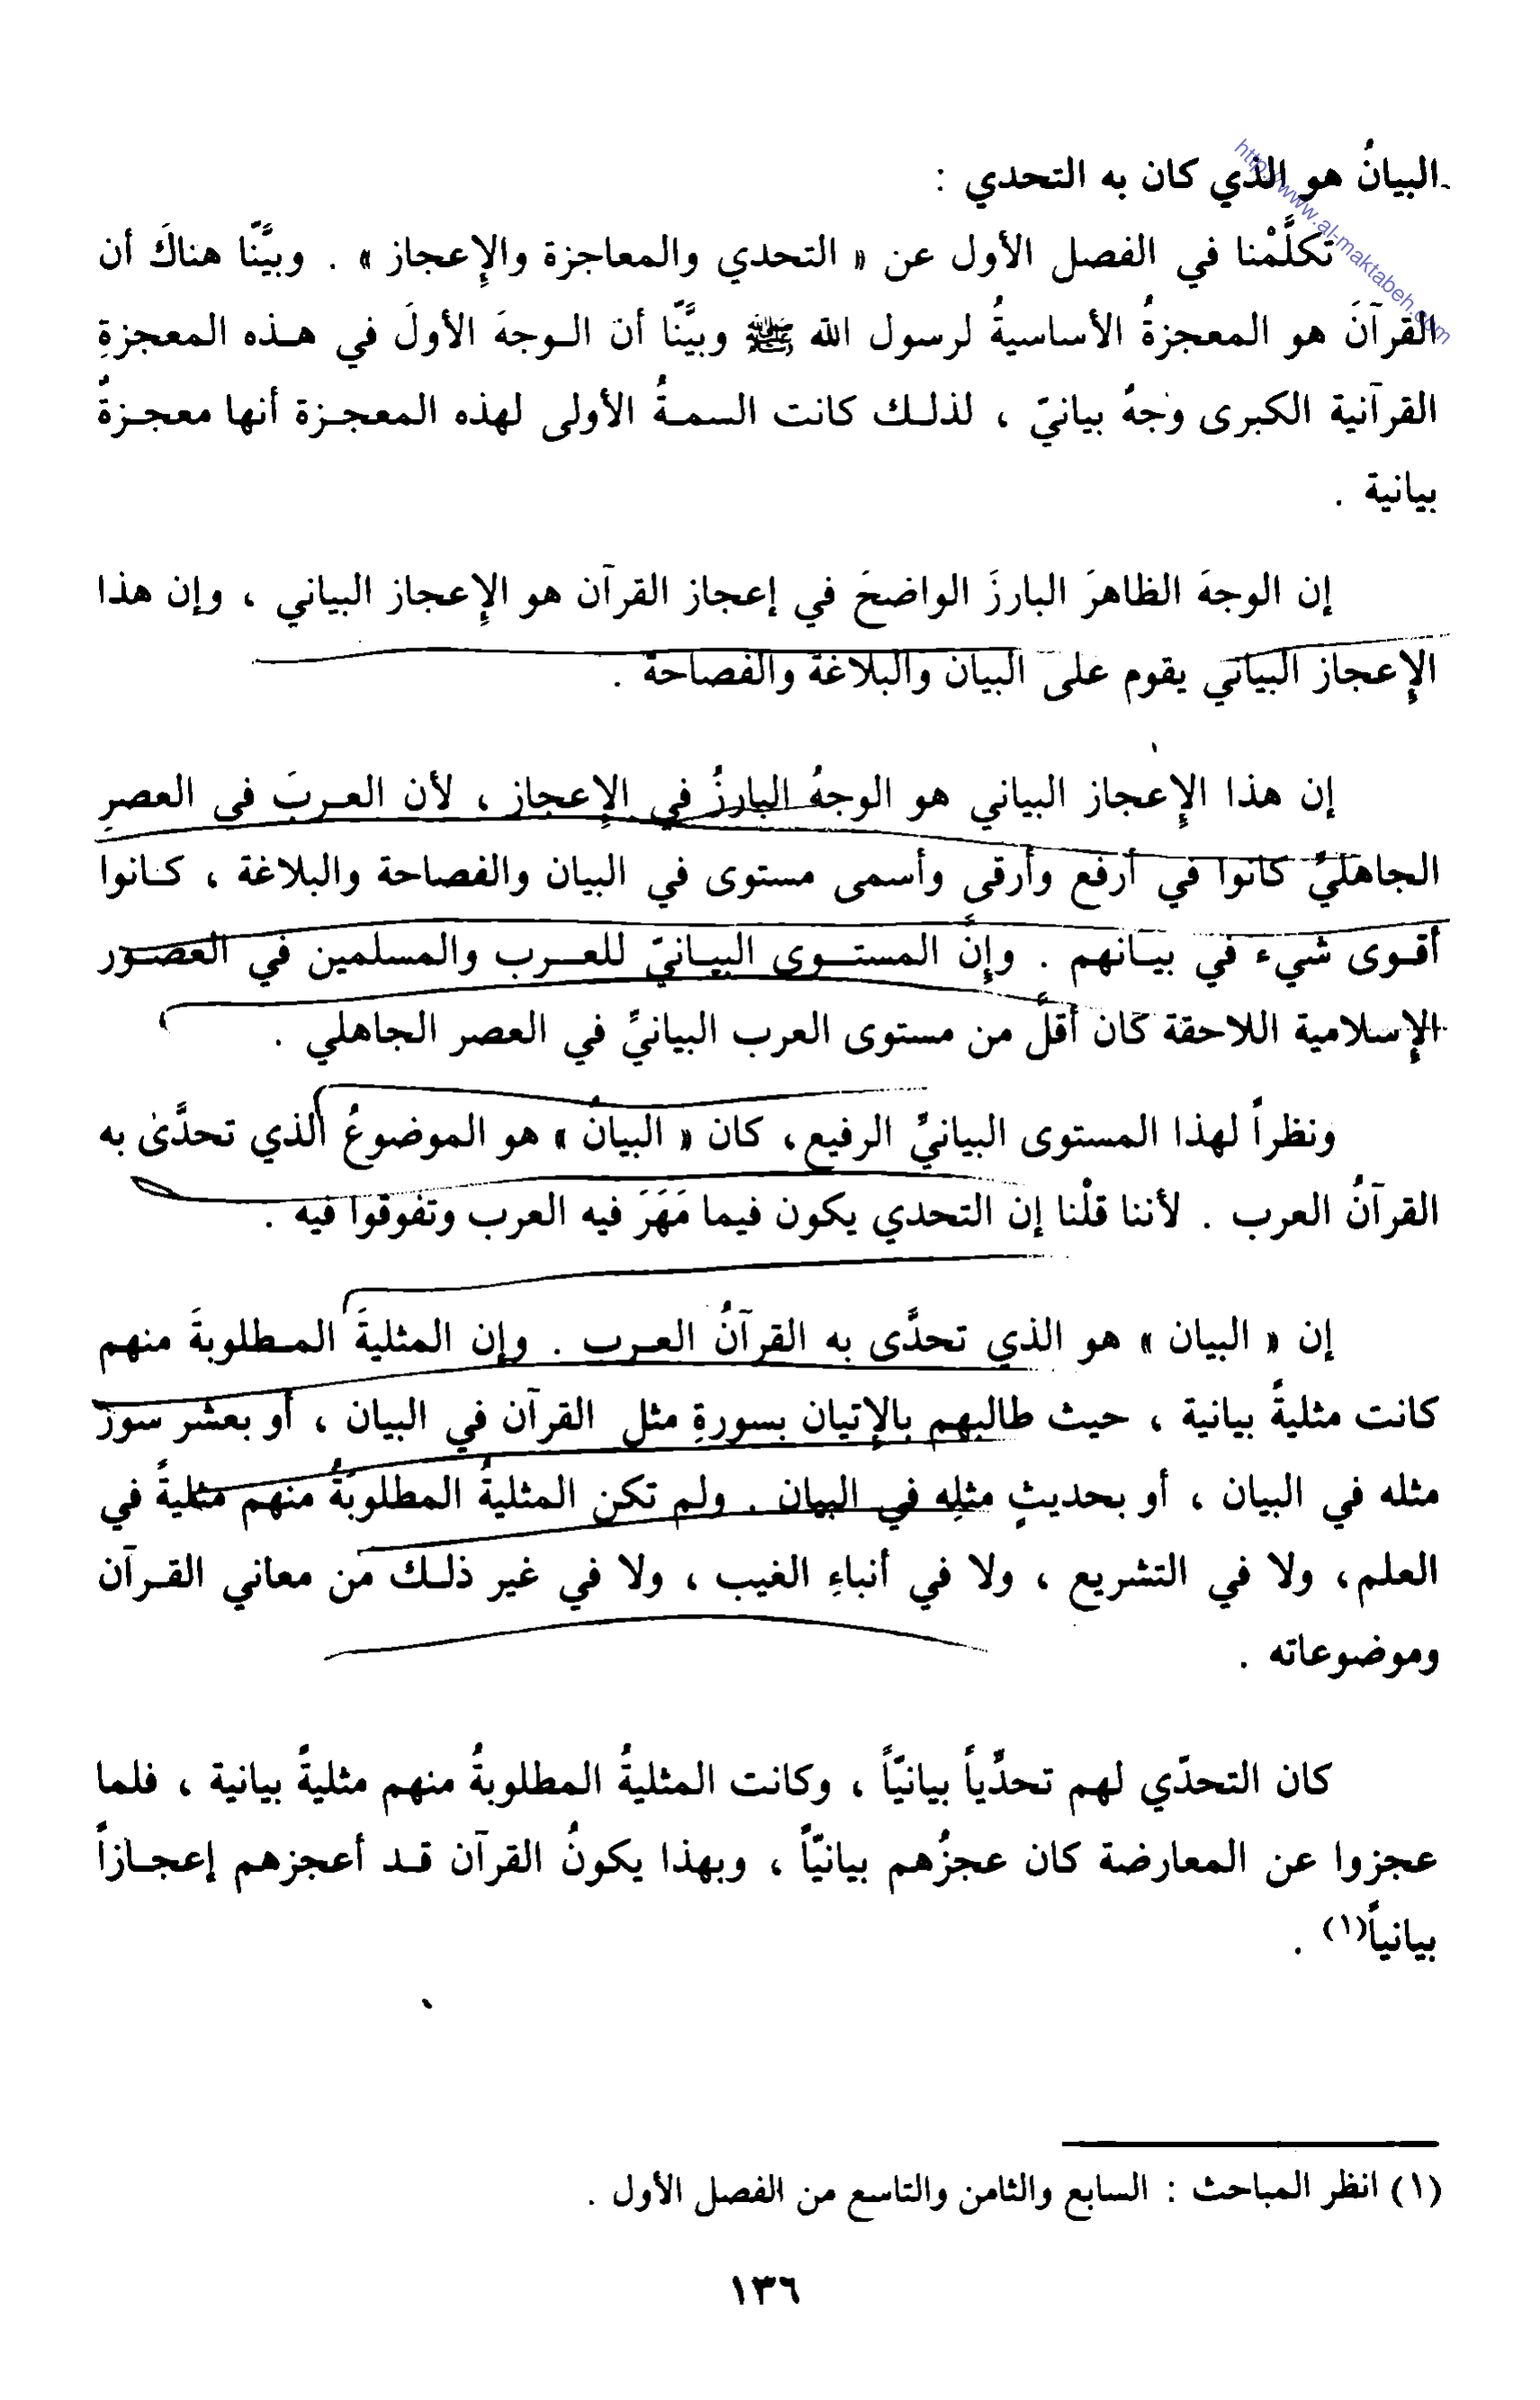 البيانُ هو الذي كان به التحدي :
http://www.al-maktabeh.com
تكلَّمْنا في الفصل الأول عن « التحدي والمعاجزة والإِعجاز » . وبيَّنّا هناكَ أن
القرآنَ هو المعجزةُ الأساسيةُ لرسول الله ﷺ وبيَّنّا أن الـوجهَ الأولَ في هـذه المعجزةِ
القرآنية الكبرى وجهٌ بيانيّ ، لذلـك كانت السمـةُ الأولى لهذه المعجـزة أنها معجـزةٌ
بيانية .
إن الوجهَ الظاهرَ البارزَ الواضحَ في إعجاز القرآن هو الإِعجاز البياني ، وإن هذا
الإِعجاز البياني يقوم على البيان والبلاغة والفصاحة .
إن هذا الإِعجاز البياني هو الوجهُ البارزُ في الإِعجاز ، لأن العـربَ في العصرِ
الجاهليِّ كانوا في أرفع وأرقى وأسمى مستوى في البيان والفصاحة والبلاغة ، كـانوا
أقـوى شيء في بيـانهم . وإِنَّ المستـوى البيـانيّ للعـرب والمسلمين في العصـور
الإِسلامية اللاحقة كان أقلَّ من مستوى العرب البيانيِّ في العصر الجاهلي .
ونظراً لهذا المستوى البيانيِّ الرفيع، كان « البيانُ » هو الموضوعُ الذي تحدَّىٰ به
القرآنُ العرب . لأننا قلْنا إن التحدي يكون فيما مَهَرَ فيه العرب وتفوقوا فيه .
إن « البيان » هو الذي تحدَّى به القرآنُ العـرب . وإن المثليةَ المـطلوبةَ منهم
كانت مثليةً بيانية ، حيث طالبهم بالإتيان بسورةِ مثل القرآن في البيان ، أو بعشر سورٍ
مثله في البيان ، أو بحديثٍ مثلِه في البيان . ولم تكن المثليةُ المطلوبَةُ منهم مثليةً في
العلم، ولا في التشريع ، ولا في أنباءِ الغيب ، ولا في غير ذلـك من معاني القـرآن
وموضوعاته .
كان التحدّي لهم تحدِّياً بيانيّاً ، وكانت المثليةُ المطلوبةُ منهم مثليةً بيانية ، فلما
عجزوا عن المعارضة كان عجزُهم بيانيّاً ، وبهذا يكونُ القرآن قـد أعجزهم إعجـازاً
بيانياً(١) .
(١) انظر المباحث : السابع والثامن والتاسع من الفصل الأول .
١٣٦